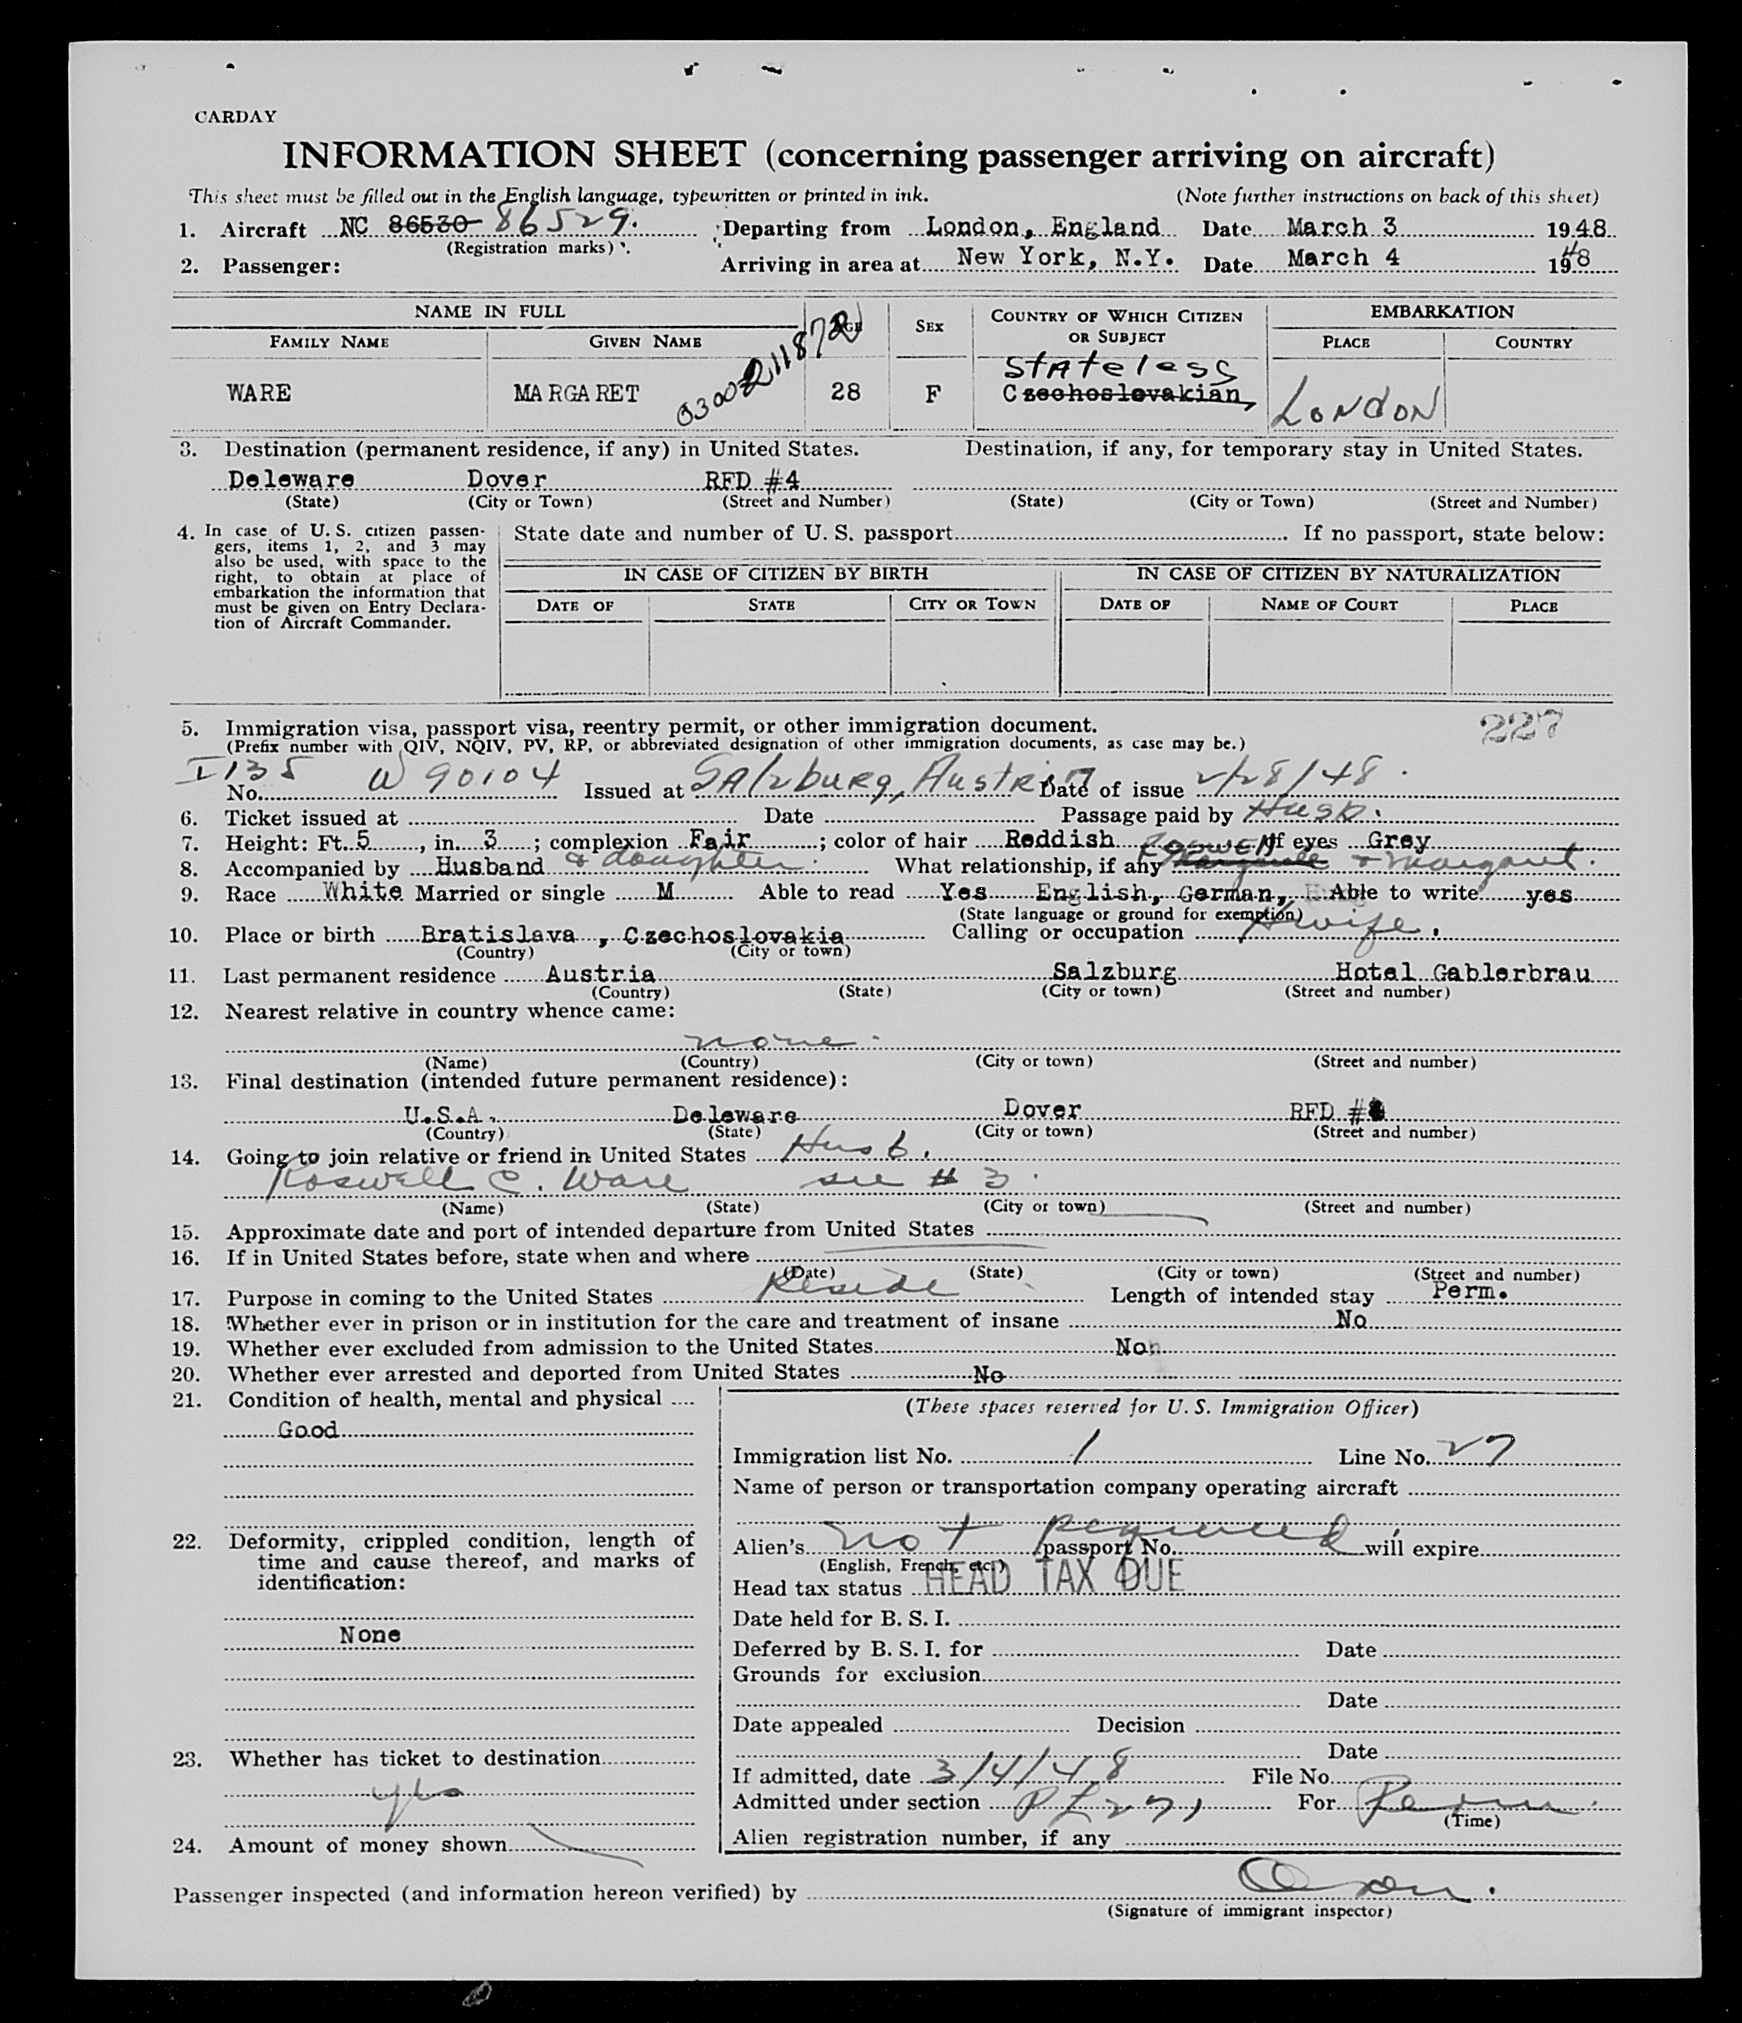 CARDAY
INFORMATION SHEET (concerning passenger arriving on aircraft)
This sheet must be filled out in the English language, typewritten or printed in ink. (Note further instructions on back of this sheet)
1. Aircraft NC 86530 86529. Departing from London, England Date March 3 1948
(Registration marks)
2. Passenger: Arriving in area at New York, N.Y. Date March 4 1948
NAME IN FULL AGE SEX COUNTRY OF WHICH CITIZEN OR SUBJECT EMBARKATION
FAMILY NAME GIVEN NAME PLACE COUNTRY
Stateless
WARE MARGARET 28 F Czechoslovakian, London
3. Destination (permanent residence, if any) in United States. Destination, if any, for temporary stay in United States.
Deleware Dover RFD #4
(State) (City or Town) (Street and Number) (State) (City or Town) (Street and Number)
4. In case of U. S. citizen passen-
gers, items 1, 2, and 3 may
also be used, with space to the
right, to obtain at place of
embarkation the information that
must be given on Entry Declara-
tion of Aircraft Commander.
State date and number of U. S. passport. If no passport, state below:
IN CASE OF CITIZEN BY BIRTH IN CASE OF CITIZEN BY NATURALIZATION
DATE OF STATE CITY OR TOWN DATE OF NAME OF COURT PLACE
227
5. Immigration visa, passport visa, reentry permit, or other immigration document.
(Prefix number with QIV, NQIV, PV, RP, or abbreviated designation of other immigration documents, as case may be.)
I 135 W 90104 Salzburg, Austria 2/28/48
No. Issued at Date of issue
6. Ticket issued at Date Passage paid by Husb.
7. Height: Ft. 5, in. 3; complexion Fair; color of hair Reddish of eyes Grey
8. Accompanied by Husband & daughter. What relationship, if any Roswell & Margaret.
9. Race White Married or single M Able to read Yes English, German, Able to write yes
(State language or ground for exemption)
10. Place or birth Bratislava, Czechoslovakia Calling or occupation Hwife.
(Country) (City or town)
11. Last permanent residence Austria Salzburg Hotel Gablerbrau
(Country) (State) (City or town) (Street and number)
12. Nearest relative in country whence came:
none.
(Name) (Country) (City or town) (Street and number)
13. Final destination (intended future permanent residence):
U.S.A. Deleware Dover RFD #
(Country) (State) (City or town) (Street and number)
14. Going to join relative or friend in United States Husb.
Roswell C. Ware see # 3.
(Name) (State) (City or town) (Street and number)
15. Approximate date and port of intended departure from United States
16. If in United States before, state when and where
(Date) (State) (City or town) (Street and number)
17. Purpose in coming to the United States Reside Length of intended stay Perm.
18. Whether ever in prison or in institution for the care and treatment of insane No
19. Whether ever excluded from admission to the United States. No
20. Whether ever arrested and deported from United States No
21. Condition of health, mental and physical
Good
22. Deformity, crippled condition, length of
time and cause thereof, and marks of
identification:
None
23. Whether has ticket to destination
yes
24. Amount of money shown
(These spaces reserved for U. S. Immigration Officer)
Immigration list No. 1 Line No. 27
Name of person or transportation company operating aircraft
Alien's not required passport No. will expire
(English, French, etc.)
Head tax status HEAD TAX DUE
Date held for B. S. I.
Deferred by B. S. I. for Date
Grounds for exclusion
Date
Date appealed Decision
Date
If admitted, date 3/4/48 File No.
Admitted under section PL 271 For Perm.
(Time)
Alien registration number, if any
Passenger inspected (and information hereon verified) by
(Signature of immigrant inspector)